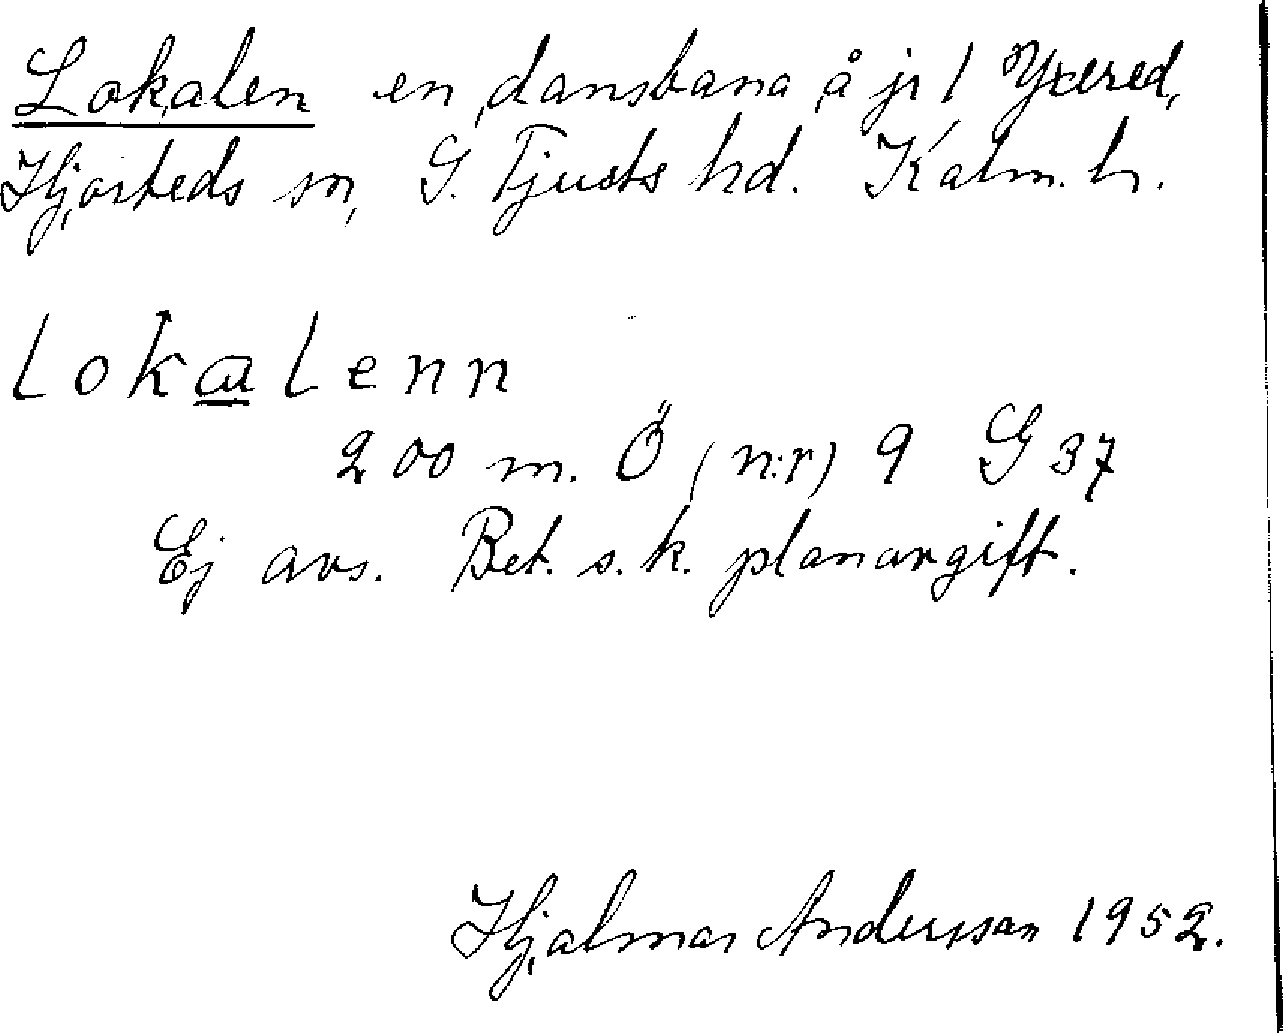 Lokalen en dansbana å jr 1 Yxered,
Hjorteds sn, S. Tjusts hd. Kalm. ln.
lokalenn
200 m. Ö (n:r) 9 G 37
Ej avs. Bet. s.k. planavgift.
Hjalmar Andersson 1952.